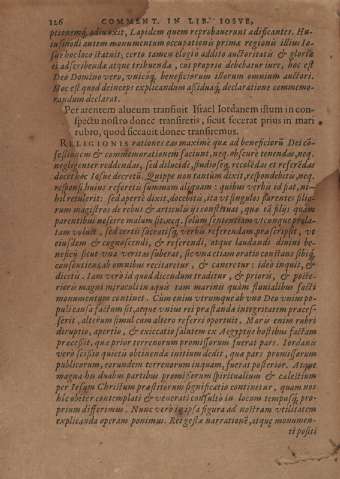 126 COMMENT. IN LIB. IOSVE,
pisonemq́; odiu vixit, Lapidem quem reprobauerunt ædificantes. Hu
iusmodi autem monumentum occupationis primæ regionis illius Io-
sue hoc loco statuit; certo tamen elogio addito auctoritatis & gloriæ
ei adscribendæ atque tribuendæ, cui proprie debebatur iure, hoc est
Deo Domino vero, vnicoq́; beneficiorum illorum omnium auctori.
Hoc est quod deinceps explicandum assiduaq́; declaratione commemo-
randum declarat.
Per arentem alueum transiuit Israel Iordanem istum in con-
spectu nostro donec transiretis, sicut fecerat prius in mari
rubro, quod siccauit donec transiremus.
RELIGIONIS rationes eas maximè quæ ad beneficiorũ Dei cõ-
fessionem & commemorationem faciunt, neq; obscurè tenendas, neq;
negligenter reddendas, sed dilucidè, studioseq́; recolẽdas et referẽdas
docet hoc Iosue decretũ. Quippe non tantùm dixit, respondebitis, neq;
responsi huius referetis summam aliquam: quibus verbis id fiat, ni-
hil retulerit: sed apertè dixit, docebitis, ita vt singulos parentes filio-
rum magistros de rebus & articulis iis constituat, quæ tã filiis quàm
parentibus nosse multum sit: neq; solùm sententiam vtcunque propo-
tam voluit, sed certis sacratisq́; verbis referendam præscripsit, vt
eiusdem & cognoscendi, & referendi, atque laudandi diuini be-
neficij sicut vna veritas suberat, sic vna etiam oratio constans sibiq́;
consentiens ab omnibus recitaretur, & cantetur: ideo inquit, &
dicetis. Iam vero id quod dicendum traditur, & prioris, & poste-
rioris magni miraculi in aquis tam marinis quàm fluuialibus facti
monumentum continet. Cùm enim vtrumque ab vno Deo vnius po-
puli causa factum sit, atque vnius rei præstandæ integritatem præce-
serit, alterum simul cum altero referri oportuit. Maris enim rubri
diruptio, apertio, & exiccatio salutem ex Aegyptiis hostibus factam
præcessit, quæ prior terrenorum promissorum fuerat pars. Iordanis
vero scissio quietis obtinendæ initium dedit, quæ pars promissorum
publicorum, eorundem terrenorum inquam, fuerat posterior. Atque
magna his duabus partibus promissorum spiritualium & cælestium
per Iesum Christum præstitorum significatio continetur, quam nos
hîc obiter contemplati & venerati consultò in locum tempusq́; pro-
prium differimus. Nunc vero ipsa figura ad nostram vtilitatem
explicanda operam ponimus. Res gestæ narratione, atque monumen-
ti positi